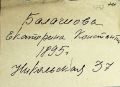 Балашова
Екатерина Констант
1895 г.
Никольская 37